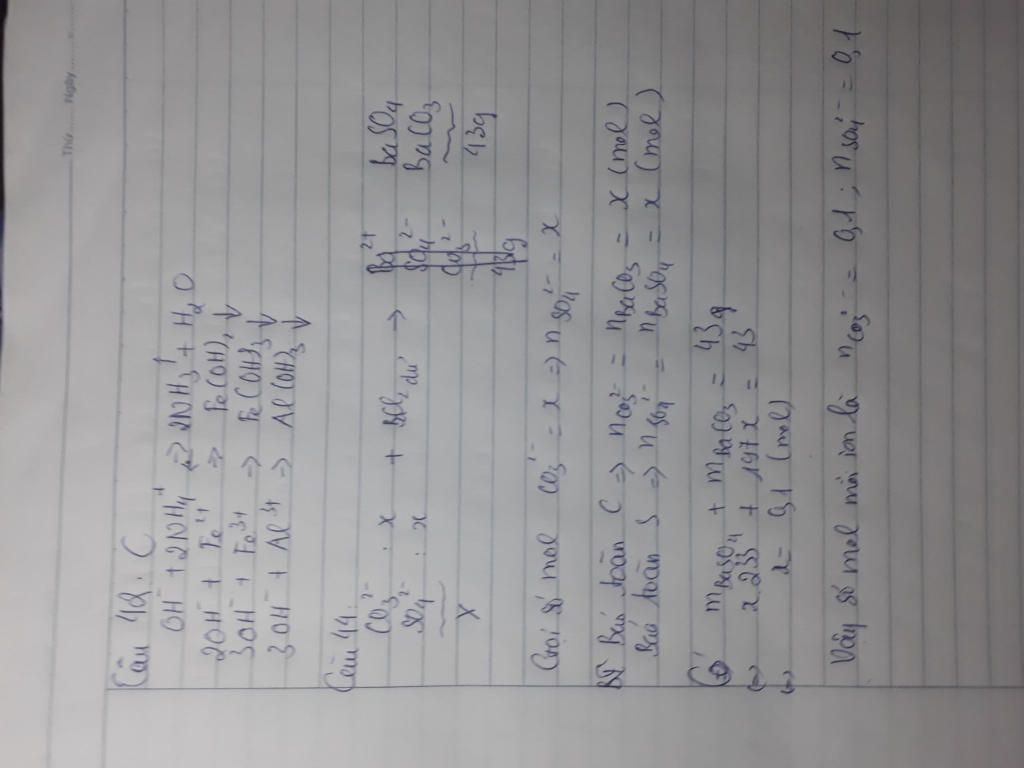 Thứ ........ Ngày ........
Câu 42. C
OH⁻ + 2NH₄⁺ ⇄ 2NH₃↑ + H₂O
2OH⁻ + Fe²⁺ ⇒ Fe(OH)₂↓
3OH⁻ + Fe³⁺ ⇒ Fe(OH)₃↓
3OH⁻ + Al³⁺ ⇒ Al(OH)₃↓
Câu 44.
CO₃²⁻ : x + BCl₂ dư → BaSO₄
SO₄²⁻ : x BaCO₃
X 43g
Gọi số mol CO₃²⁻ = x ⇒ n SO₄²⁻ = x
Bảo toàn C ⇒ n CO₃²⁻ = n BaCO₃ = x (mol)
Bảo toàn S ⇒ n SO₄²⁻ = n BaSO₄ = x (mol)
Có m BaSO₄ + m BaCO₃ = 43g
(=) x 233 + 197x = 43
(=) x = 0,1 (mol)
Vậy số mol mỗi ion là n CO₃²⁻ = 0,1 ; n SO₄²⁻ = 0,1